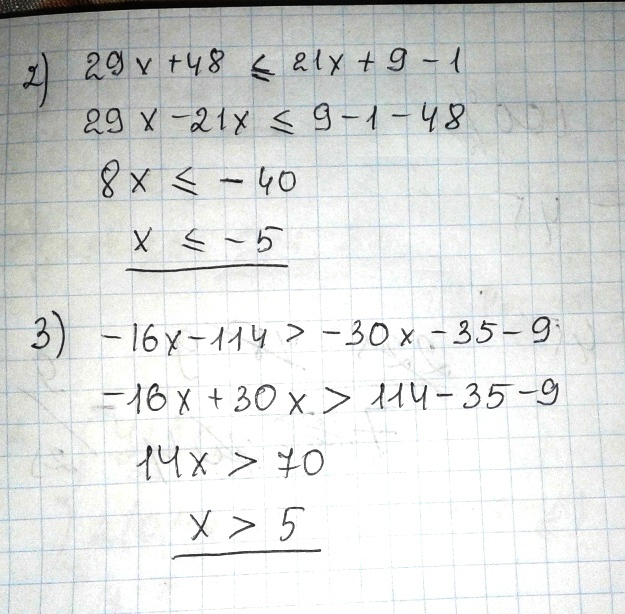 2) 29x + 48 ≤ 21x + 9 - 1
29x - 21x ≤ 9 - 1 - 48
8x ≤ - 40
x ≤ - 5
3) -16x - 114 > -30x - 35 - 9
-16x + 30x > 114 - 35 - 9
14x > 70
x > 5